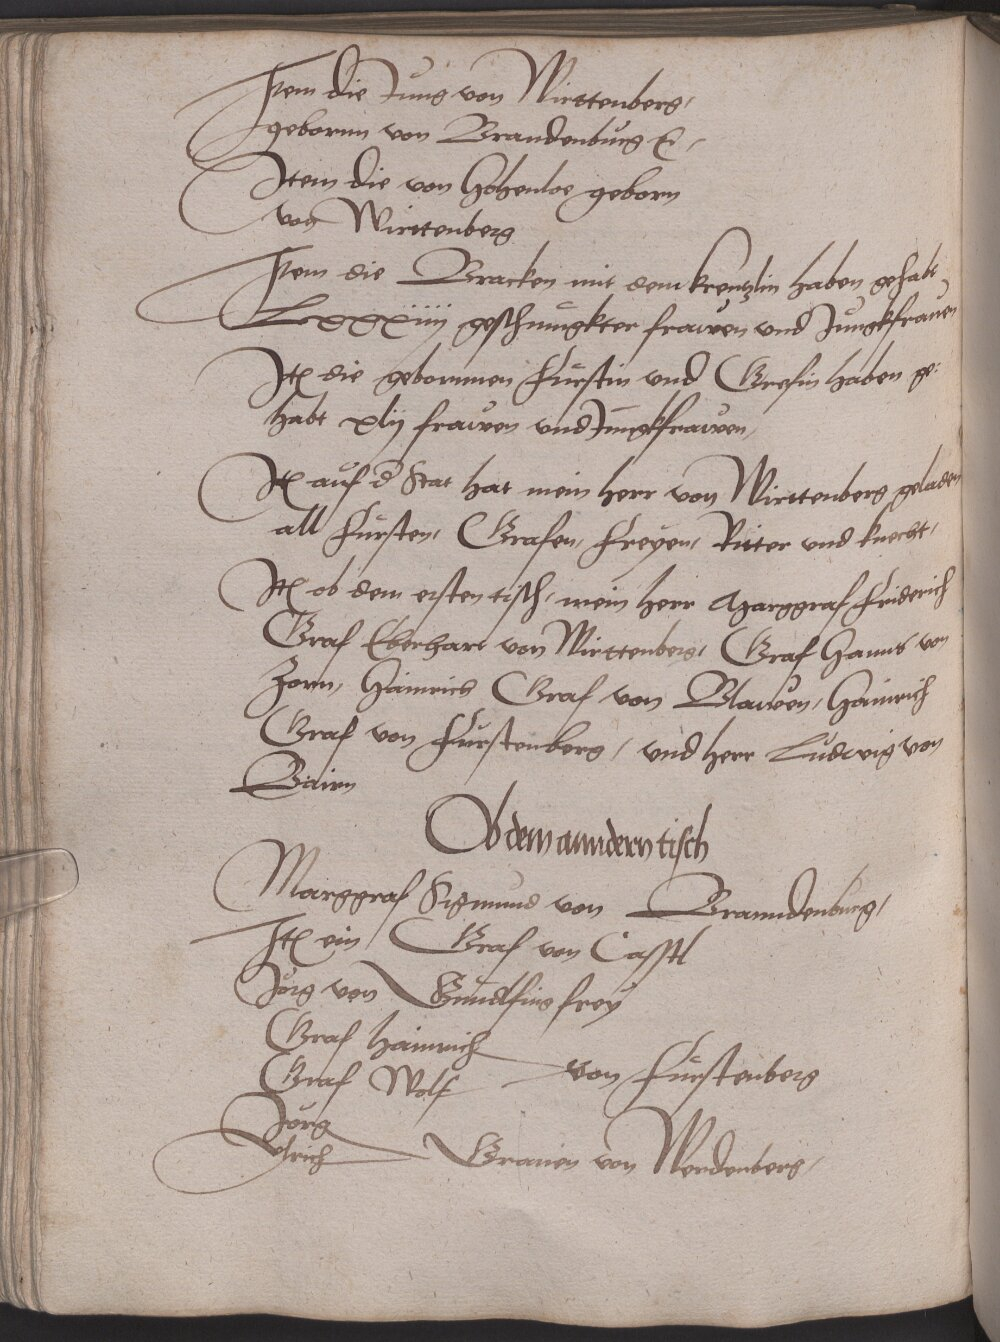 Item die Jung von Wirttenberg,
gebornn von Brandenburg ꝛc,
Item die von Hohenloe geborn
von Wirttenberg
Item die Bracken mit dem krentzlin haben gehabt
Lxxxxiiij geschmugkter frawen und Jungkfrauen
Itē die gebornnen Fürstin und Grefin haben ge-
habt xlij frawen und Jungkfrawen,
Itē auf d Stat hat mein herr von Wirttenberg geladen
all Fürsten, Grafen, Freyen, Ritter und knecht,
Itē ob dem ersten tisch, mein herr Marggraf Friderich
Graf Eberhart von Wirttenberg, Graf Hanns von
Zorn, Hainrich Graf von Blawen, Hainrich
Graf von Fürstenberg, und herr Ludwig von
Bairn
Ob dem anndern tisch
Marggraf Sigmund von Branndenburg,
Itē ein Graf von Casstl
Jörg von Gundlfing frey
Graf Hainrich
Graf Wolf von Fürstenberg
Jörg
Ulrich Grauen von Werdenberg,